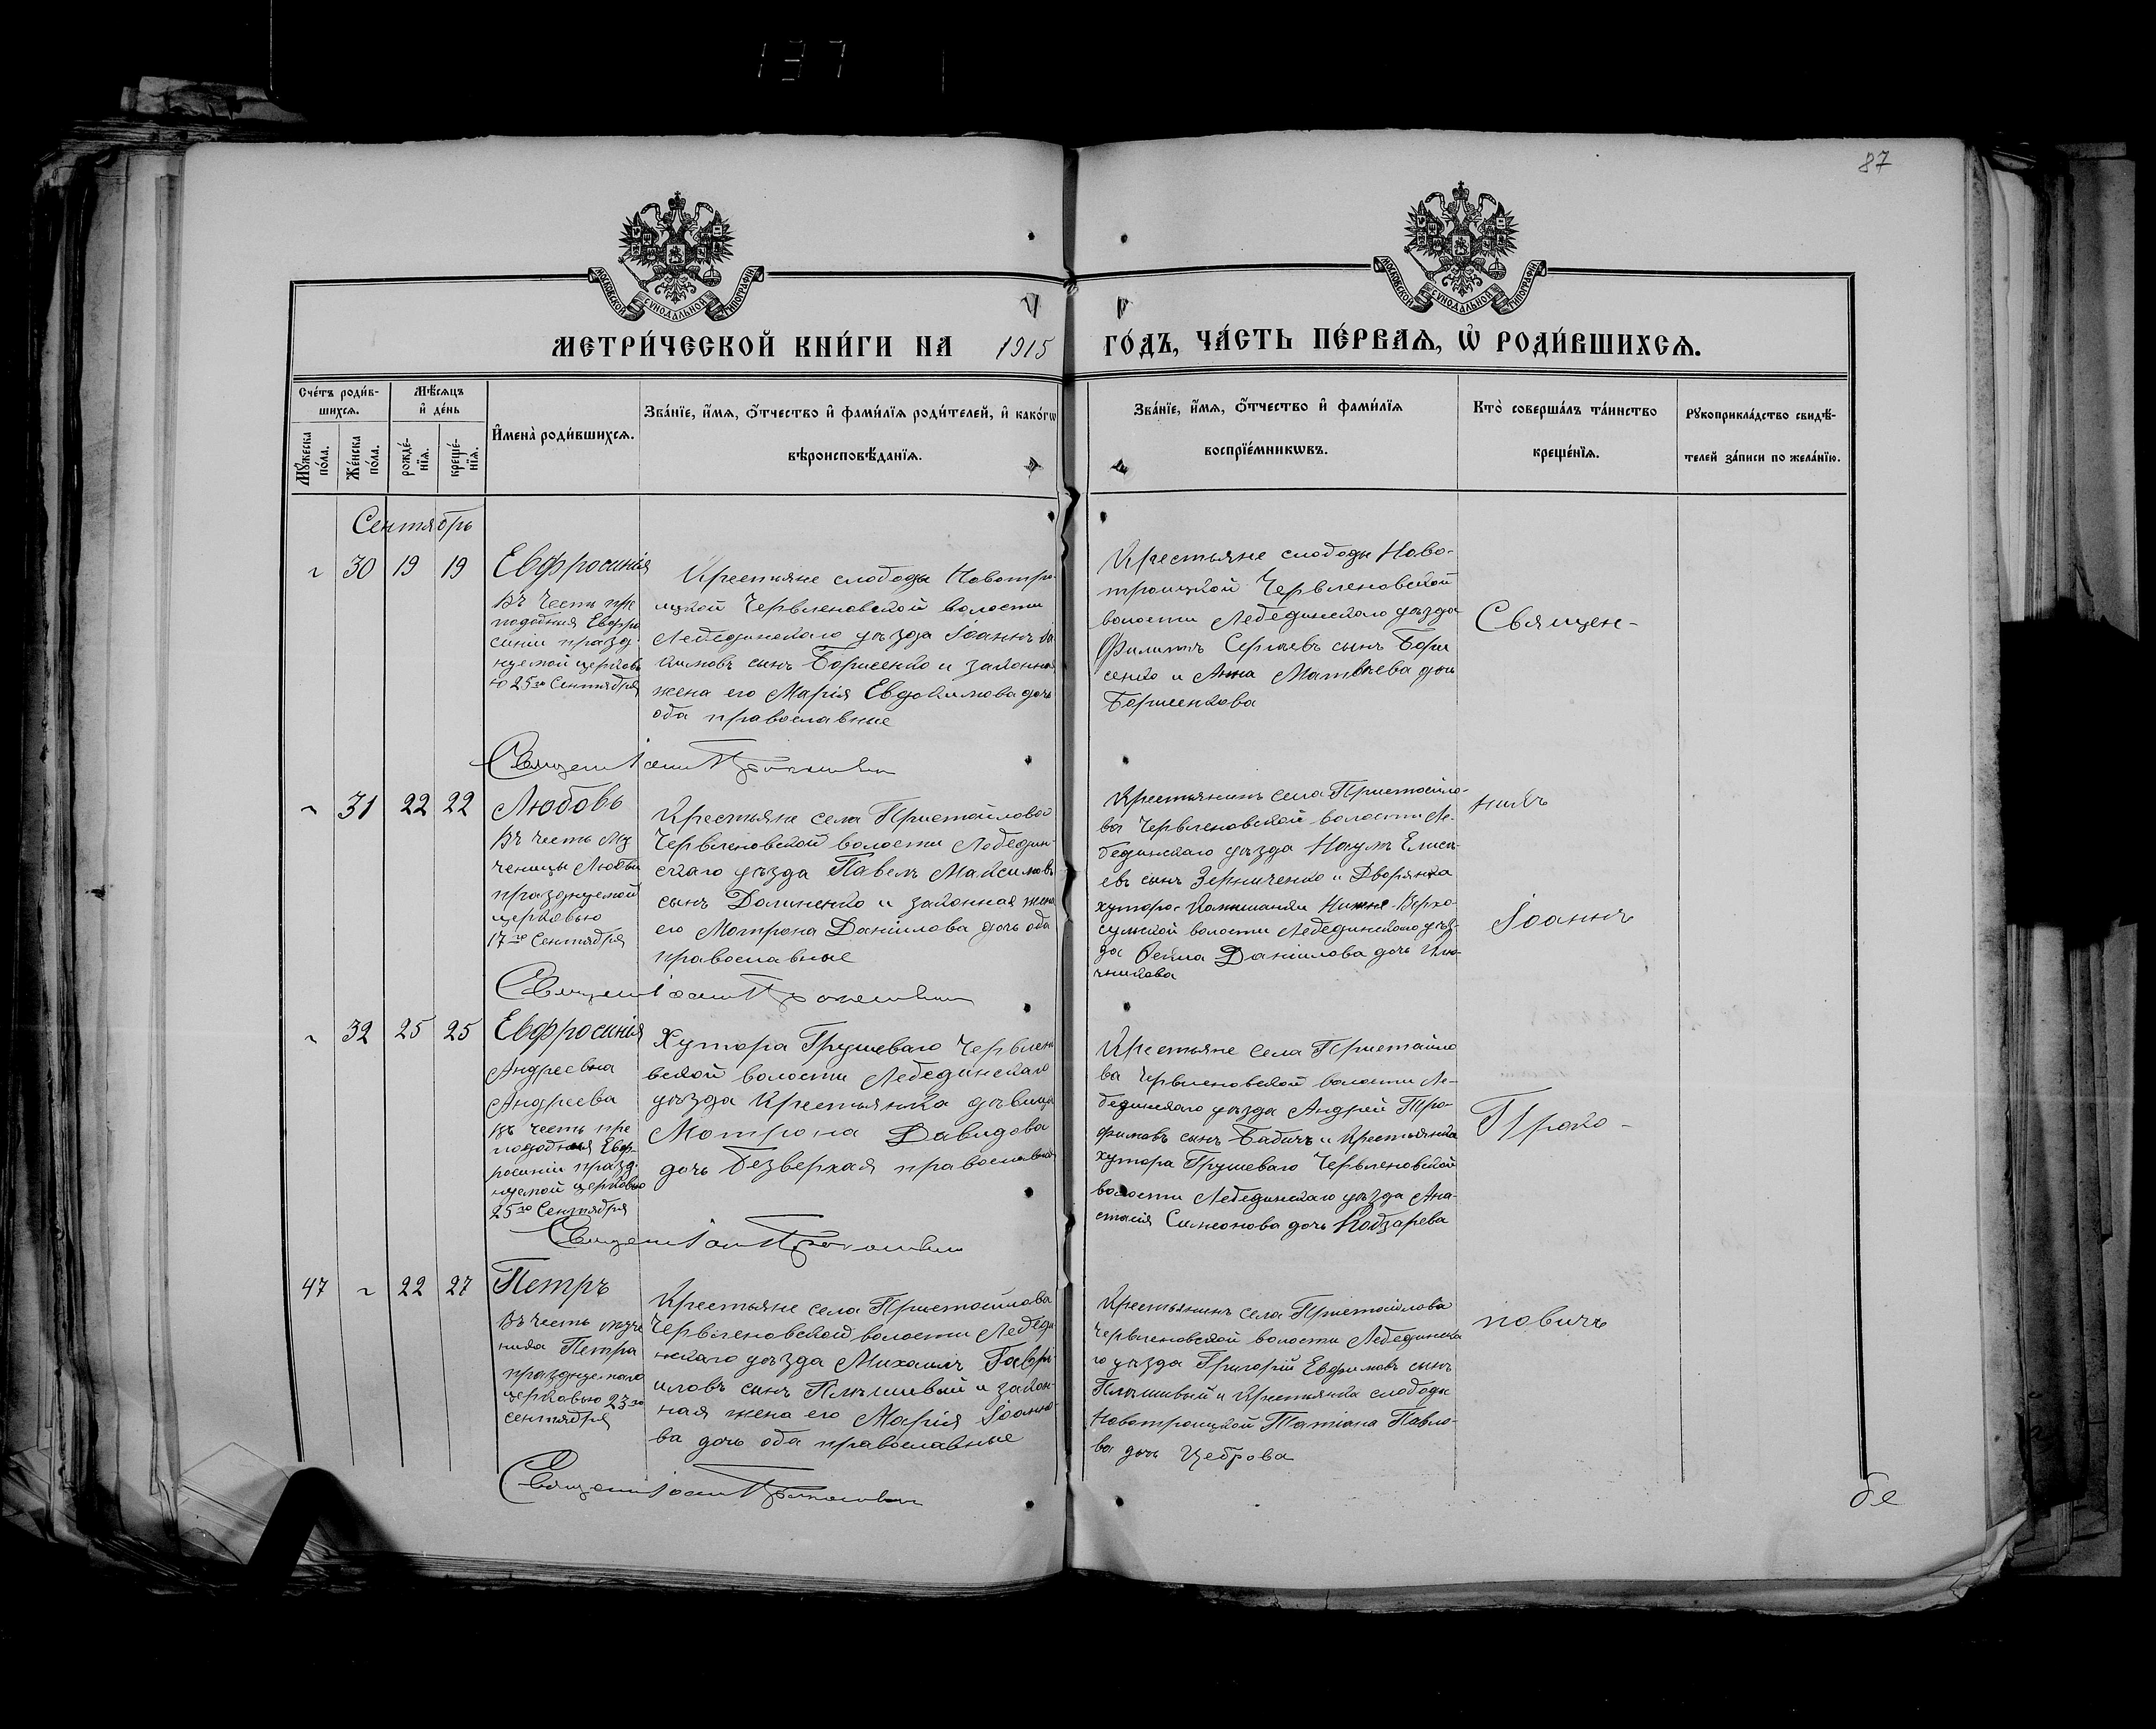 137
87
МОСКОВСКОЙ СУНОДАЛЬНОЙ ТИПОГРАФІИ
МОСКОВСКОЙ СУНОДАЛЬНОЙ ТИПОГРАФІИ
МЕТРИ́ЧЕСКОЙ КНИ́ГИ НА 1915 ГО́ДЪ, ЧА́СТЬ ПЕ́РВАЯ, Ѡ РОДИ́ВШИХСЯ.
Сче́тъ роди́в-
шихся.
Мѣ́сяцъ
и҆ де́нь
Мꙋ́жеска
по́ла.
Же́нска
по́ла.
рожде́-
нїя.
креще́-
нїя.
И҆мена̀ роди́вшихся.
Зва́нїе, и҆́мя, ѻ҆́тчество и҆ фами́лїя роди́телей, и҆ како́гѡ
вѣроисповѣ́данїя.
Зва́нїе, и҆́мя, ѻ҆́тчество и҆ фами́лїя
воспрїе́мникѡвъ.
Кто̀ соверша́лъ та́инство
креще́нїя.
Рꙋкоприкла́дство свидѣ́-
телей за́писи по жела́нїю.
Сентябрь
30 19 19
Евфросинія
Въ честь пре
подобныя Евфро
синіи празд-
нуемой церковь
ю 25го Сентября
Крестьяне слободы Новотро-
ицкой Червленовской волости
Лебединскаго уѣзда Іоаннъ
кимовъ сынъ Борисенко и законная
жена его Марія Евдокимова дочь
оба православные
Крестьяне слободы Ново-
троицкой Червленовской
волости Лебединскаго уѣзда
Филиппъ Сергѣевъ сынъ Бори
сенко и Анна Матвѣева дочь
Борисенкова
Священ-
Священ Іоанн Прокопович
31 22 22
Любовь
Въ честь му
ченицы Любви
празднуемой
церковью
17го Сентября
Крестьяне села Пристайлова
Червленовской волости Лебедин-
скаго уѣзда Павелъ Максимовъ
сынъ Долиненко и законная жена
его Матрона Даніилова дочь оба
православные
Крестьянинъ села Пристайло-
ва Червленовской волости Ле-
бединскаго уѣзда Наумъ Елисѣ-
евъ сынъ Зерниченко и Дворянка
хутора Нижне-Верхо-
сульской волости Лебединскаго уѣз-
да Даніилова дочь Клю-
чникова
никъ
Іоаннъ
Священ Іоанн Прокопович
32 25 25
Евфросинія
Андреевна
Андреева
Въ честь пре
подобныя Евф-
росиніи празд-
нуемой церковью
25го Сентября
Хутора Грушеваго Червлено
вской волости Лебединскаго
уѣзда Крестьянка дѣвица
Матрона Давидова
дочь Безверхая православная
Крестьяне села Пристайло
ва Червленовской волости Ле-
бединскаго уѣзда Андрей Тро-
фимовъ сынъ Бабичъ и Крестьянка
хутора Грушеваго Червленовской
волости Лебединскаго уѣзда Ана-
стасія Симеонова дочь Кобзарева
Проко-
Священ Іоан Прокопович
47 22 27
Петръ
Въ честь муче
ника Петра
празднуемаго
церковью 23го
сентября
Крестьяне села Пристайлова
Червленовской волости Лебеди
нскаго уѣзда Михаилъ Гаврі-
иловъ сынъ Плѣшивый и закон-
ная жена его Марія Іоанно-
ва дочь оба православные
Крестьянинъ села Пристайлова
Червленовской волости Лебединска
го уѣзда Григорій Евфимовъ сынъ
Плѣшивый и Крестьянка слободы
Новотроицкой Татіана Павло-
ва дочь Цеброва
повичъ
Священ Іоанн Прокопович